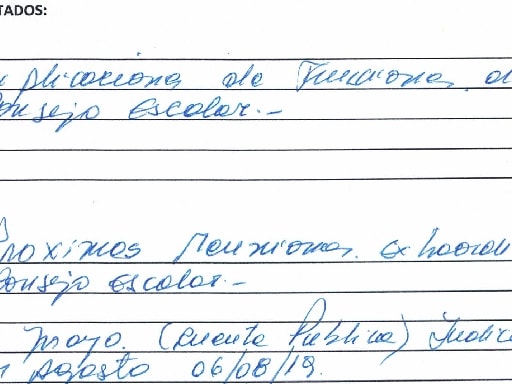 TADOS:
plicaciona de Funciona
onsejo Escolar.-
roximas Reuniones. extraord
onsejo escolar.-
mayo. (cuenta Publica) Indica
Agosto 06/08/19.